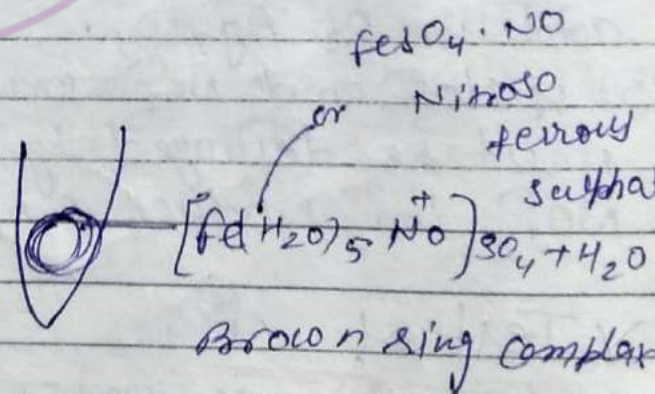 FeSO₄·NO
Nitroso
or
ferrous
sulpha
[Fe(H₂O)₅ N⁺O]SO₄ + H₂O
Brown ring complex